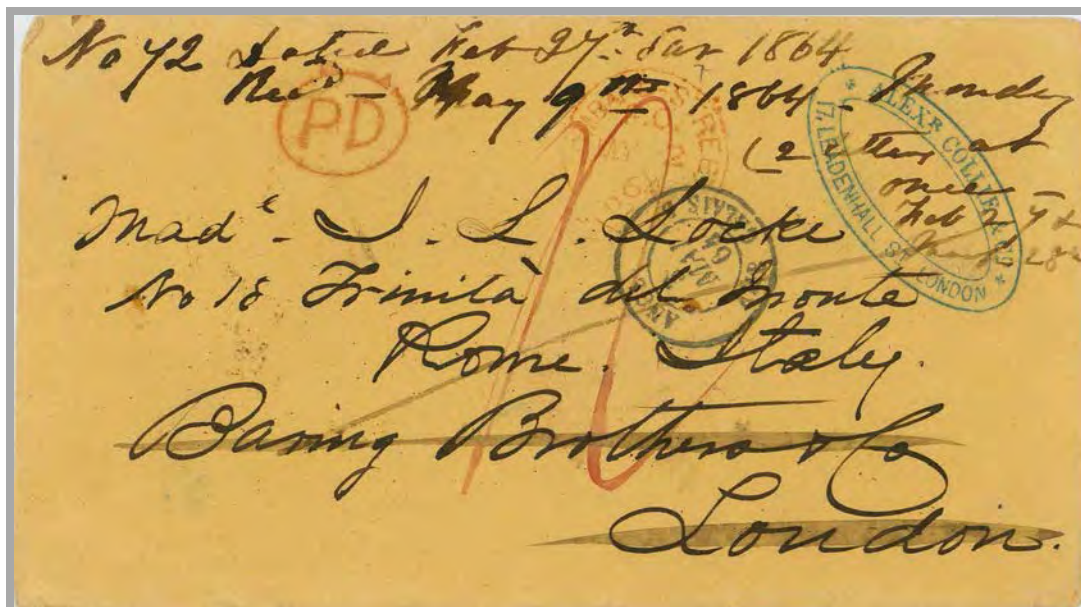 No 72 Dated Feb 27th Sat 1864
Recd - May 9th 1864 - Monday
(2 at
once -
Feb 27 &
PD
ALEXR COLLIE & Co
17, LEADENHALL ST LONDON
CALAIS
Made - J. L. Locke
No 18 Trinità del Monte
Rome. Italy.
Baring Brothers & Co
London.